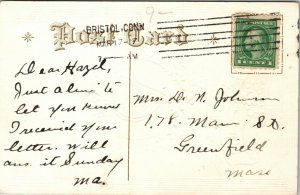 2-
BRISTOL, CONN
AM
Post Card
1 CENT 1
Dear Hazel,
Just a line to
let you know
I received your
letter. Will
ans. it Sunday
Ma.
Mrs. D. N. Johnson
178. Main St.
Greenfield
Mass